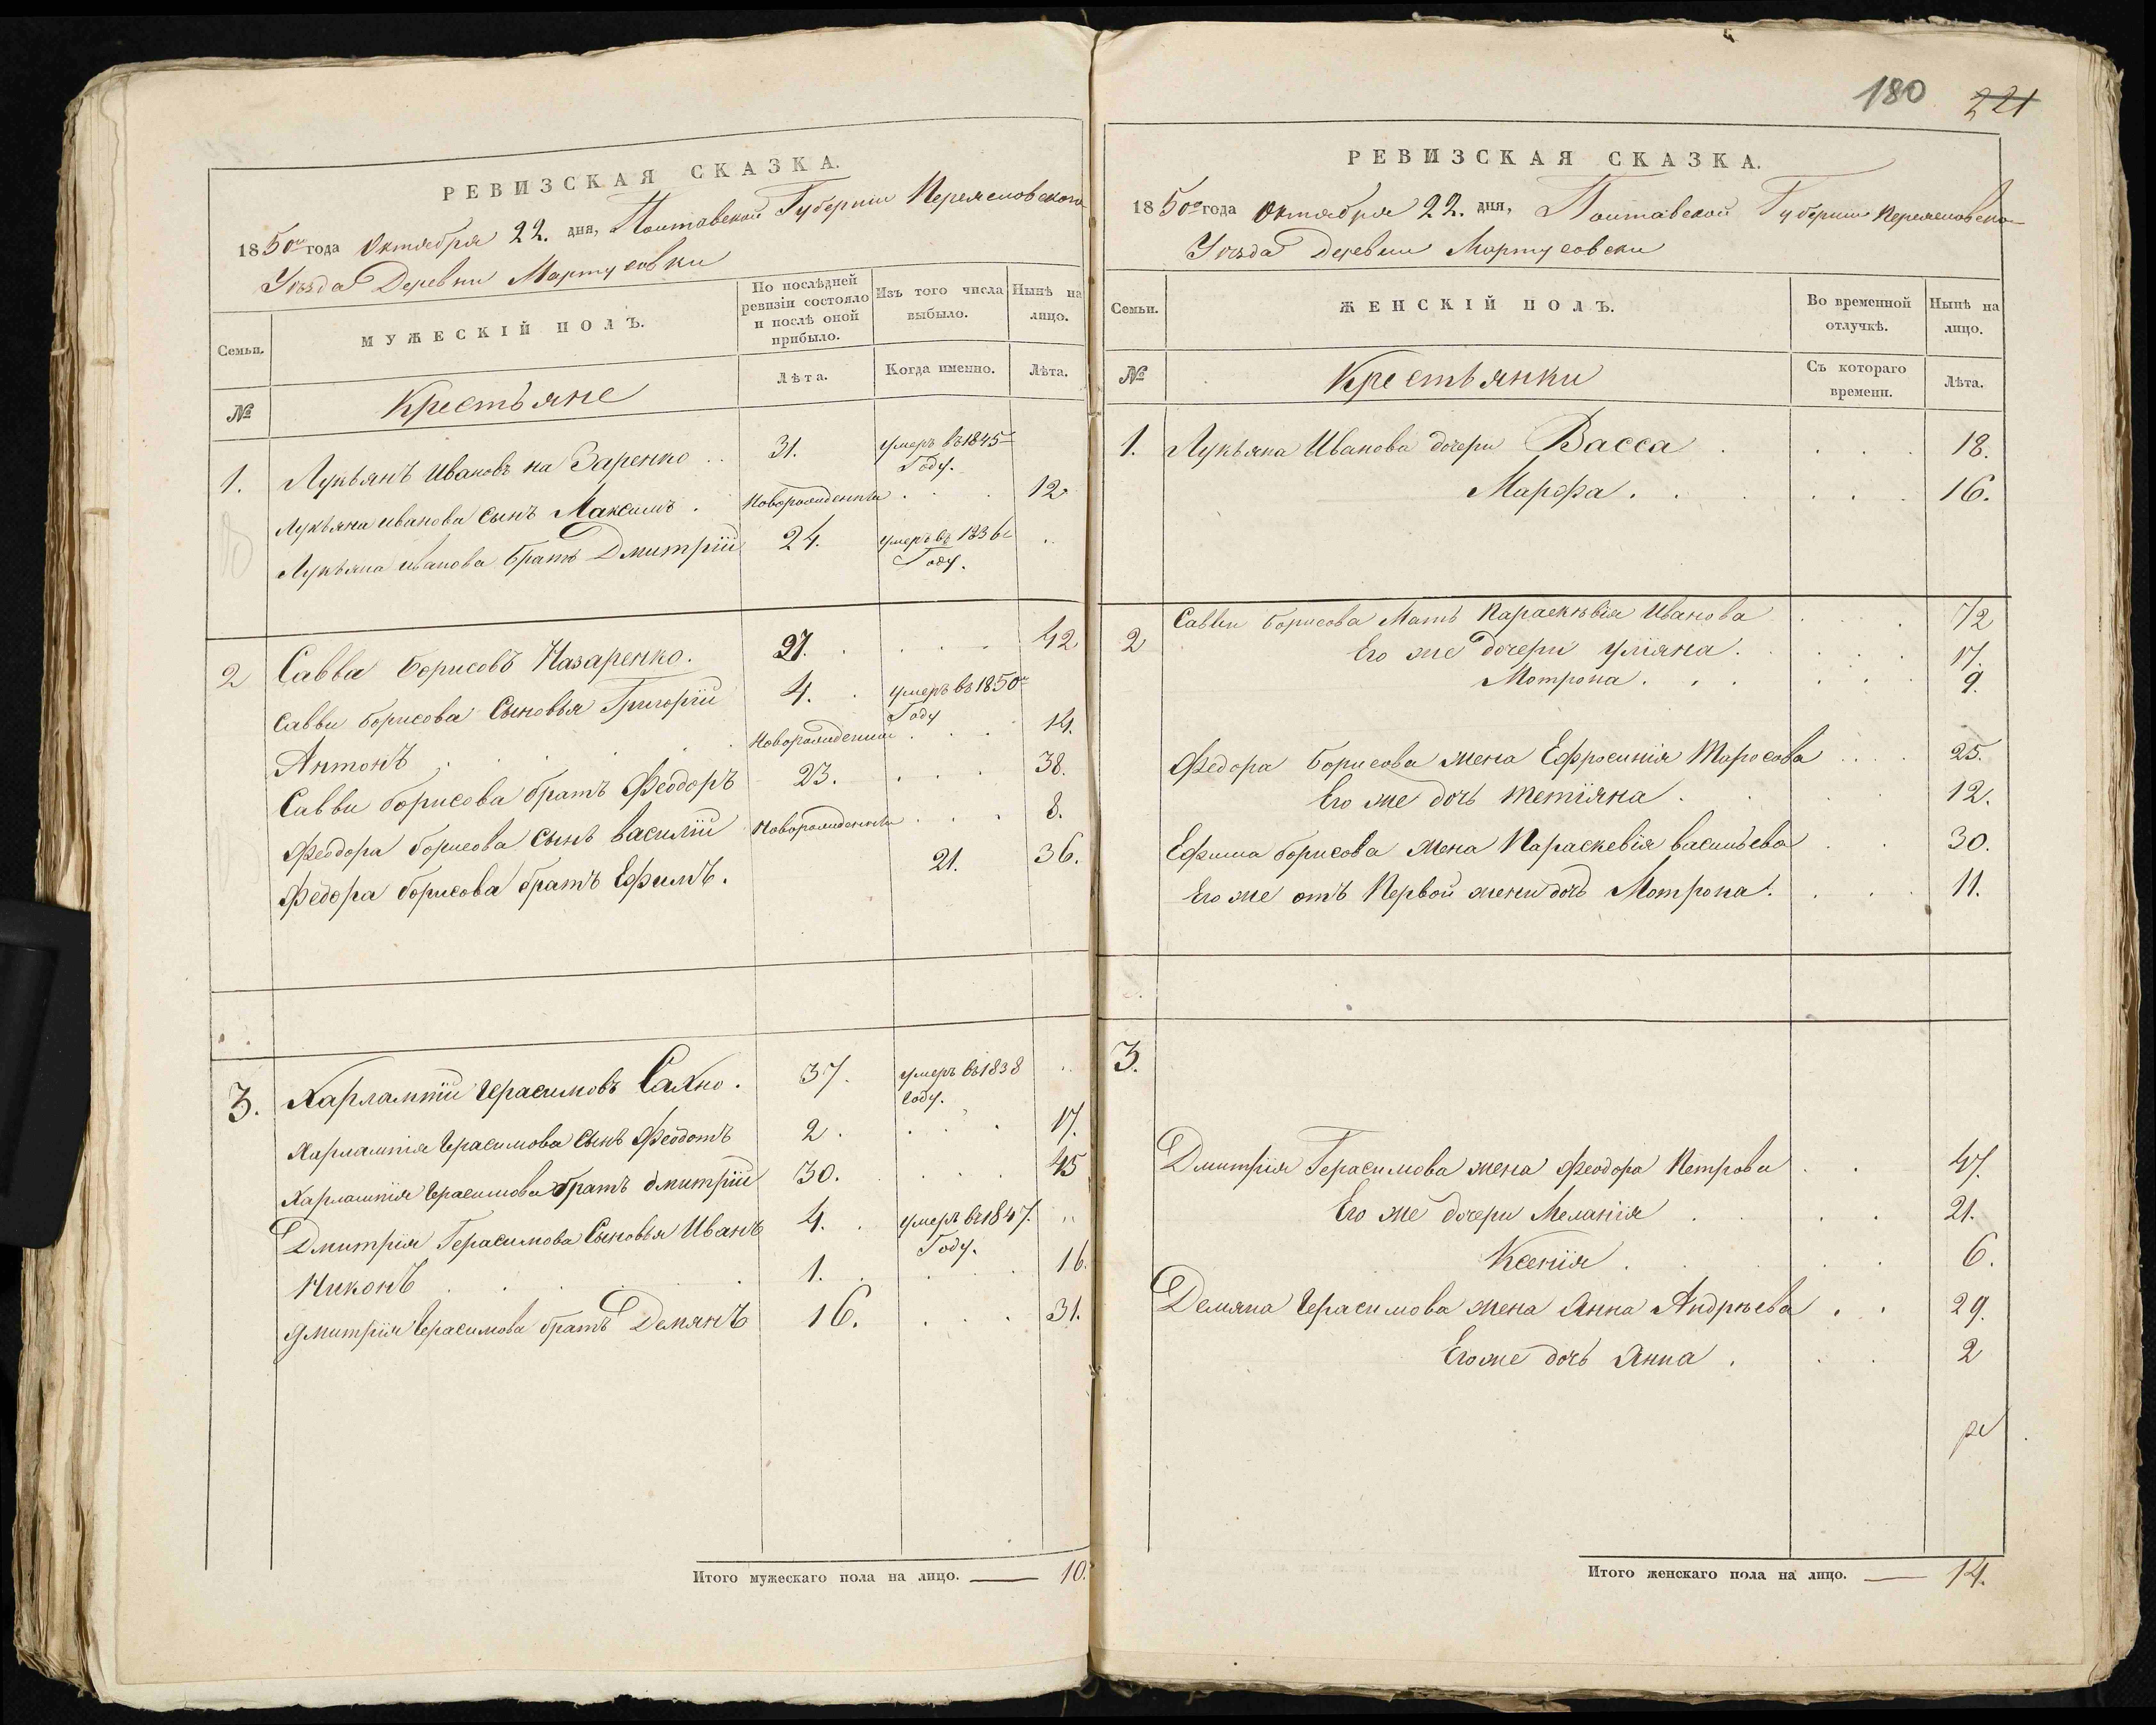 РЕВИЗСКАЯ СКАЗКА.
1850го года Октября 22. дня, Полтавской Губерніи Переяславского
Уезда Деревни Мартусовки
Семьи.
МУЖЕСКІЙ ПОЛЪ.
По послѣдней ревизіи состояло и послѣ оной прибыло.
Изъ того числа выбыло.
Нынѣ на лицо.
№
Крестьяне
Лѣта.
Когда именно.
Лѣта.
1. Лукьянъ Ивановъ на Заренко .. 31. умеръ въ 1845м
Году.
Лукьяна иванова сынъ Максимъ . Новорожденный . . . 12
Лукьяна иванова братъ Дмитрій 24. умеръ въ 1836м ..
Году.
2 Савва Борисовъ Назаренко. 27. . . . . 42
Савви Борисова Сыновья Григорій 4. . умеръ въ 1850м
Году
Антонъ . . . . Новорожденный . . . 14.
Савви Борисова братъ Феодоръ 23. . . . 38.
Феодора Борисова сынъ василій Новорожденный . . . 8.
Федора Борисова братъ Ефимъ. 21. 36.
3. Харлампій Герасимовъ Сахно. 37. умеръ въ 1838 ..
году.
Харлампія Герасимова сынъ Феодотъ 2. . . . 17.
Харлампія Герасимова братъ дмитрій 30. . . . 45
Дмитрія Герасимова Сыновья Иванъ 4. . умеръ въ 1847. ..
Году.
Никонъ . . . . 1. . . . . 16.
Дмитрія Герасимова братъ Демянъ 16. . . . 31.
Итого мужескаго пола на лицо. — 10.
180 221
РЕВИЗСКАЯ СКАЗКА.
1850го года Октября 22. дня, Полтавской Губерніи Переяславско
Уезда Деревни Мартусовски
Семьи.
ЖЕНСКІЙ ПОЛЪ.
Во временной отлучкѣ.
Нынѣ на лицо.
№
Крестьянки
Съ котораго времени.
Лѣта.
1. Лукьяна Иванова дочери Васса . . . . 18.
Марфа . . . . . . 16.
2 Савви Борисова Мать Параскѣвія Иванова . . . 72
Его же дочери уліяна. . . . . 17.
Мотрона . . . . . . 9.
Федора Борисова жена Ефросинія Таросова . . . . 25.
Его же дочь тетіяна . . . . 12.
Ефима Борисова жена Параскевія васильева . . 30.
Его же отъ Первой жени дочь Мотрона. . . . 11.
3.
Дмитрія Герасимова жена феодора Петрова . . 47.
Его же дочери Меланія . . . . 21.
Ксенія . . . . 6.
Демяна Герасимова жена Анна Андрѣева . . 29.
Его же дочь Анна . . . 2
Итого женскаго пола на лицо. — 14.